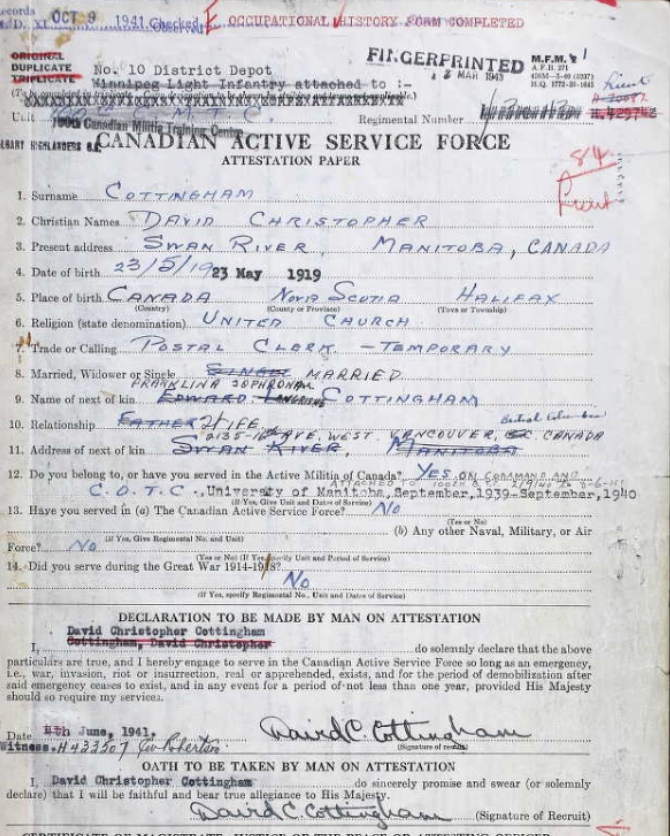 OCT 9 1941 Checked E OCCUPATIONAL HISTORY FORM COMPLETED
ORIGINAL
DUPLICATE
TRIPLICATE
No. 10 District Depot
Winnipeg Light Infantry attached to :-
FINGERPRINTED
MAR 1943
M.F.M. 1
Lieut
Unit M.T.C.
100th Canadian Militia Training Centre
Regimental Number
HIGHLANDERS
CANADIAN ACTIVE SERVICE FORCE
ATTESTATION PAPER
84
Lieut
1. Surname COTTINGHAM
2. Christian Names DAVID CHRISTOPHER
3. Present address SWAN RIVER, MANITOBA, CANADA
4. Date of birth 23/5/19 23 May 1919
5. Place of birth CANADA NOVA SCOTIA HALIFAX
(Country) (County or Province) (Town or Township)
6. Religion (state denomination) UNITED CHURCH
7. Trade or Calling POSTAL CLERK - TEMPORARY
8. Married, Widower or Single SINGLE MARRIED
FRANKLINA
9. Name of next of kin EDWARD COTTINGHAM
10. Relationship FATHER WIFE British Columbia
AVE, WEST VANCOUVER, CANADA
11. Address of next of kin SWAN RIVER, MANITOBA
12. Do you belong to, or have you served in the Active Militia of Canada? YES ON COMMAND AND
ATTACHED TO
C.O.T.C., University of Manitoba, September, 1939-September, 1940
(If Yes, Give Unit and Dates of Service)
13. Have you served in (a) The Canadian Active Service Force? NO
(Yes or No)
(b) Any other Naval, Military, or Air
(If Yes, Give Regimental No. and Unit)
Force? NO
(Yes or No) (If Yes, specify Unit and Period of Service)
14. Did you serve during the Great War 1914-1918?
NO
(If Yes, specify Regimental No., Unit and Dates of Service)
DECLARATION TO BE MADE BY MAN ON ATTESTATION
David Christopher Cottingham
I, Cottingham, David Christopher do solemnly declare that the above
particulars are true, and I hereby engage to serve in the Canadian Active Service Force so long as an emergency,
i.e., war, invasion, riot or insurrection, real or apprehended, exists, and for the period of demobilization after
said emergency ceases to exist, and in any event for a period of not less than one year, provided His Majesty
should so require my services.
Date June, 1941. David C. Cottingham
Witness. H433507
(Signature of recruit)
OATH TO BE TAKEN BY MAN ON ATTESTATION
I, David Christopher Cottingham do sincerely promise and swear (or solemnly
declare) that I will be faithful and bear true allegiance to His Majesty.
David C Cottingham (Signature of Recruit)